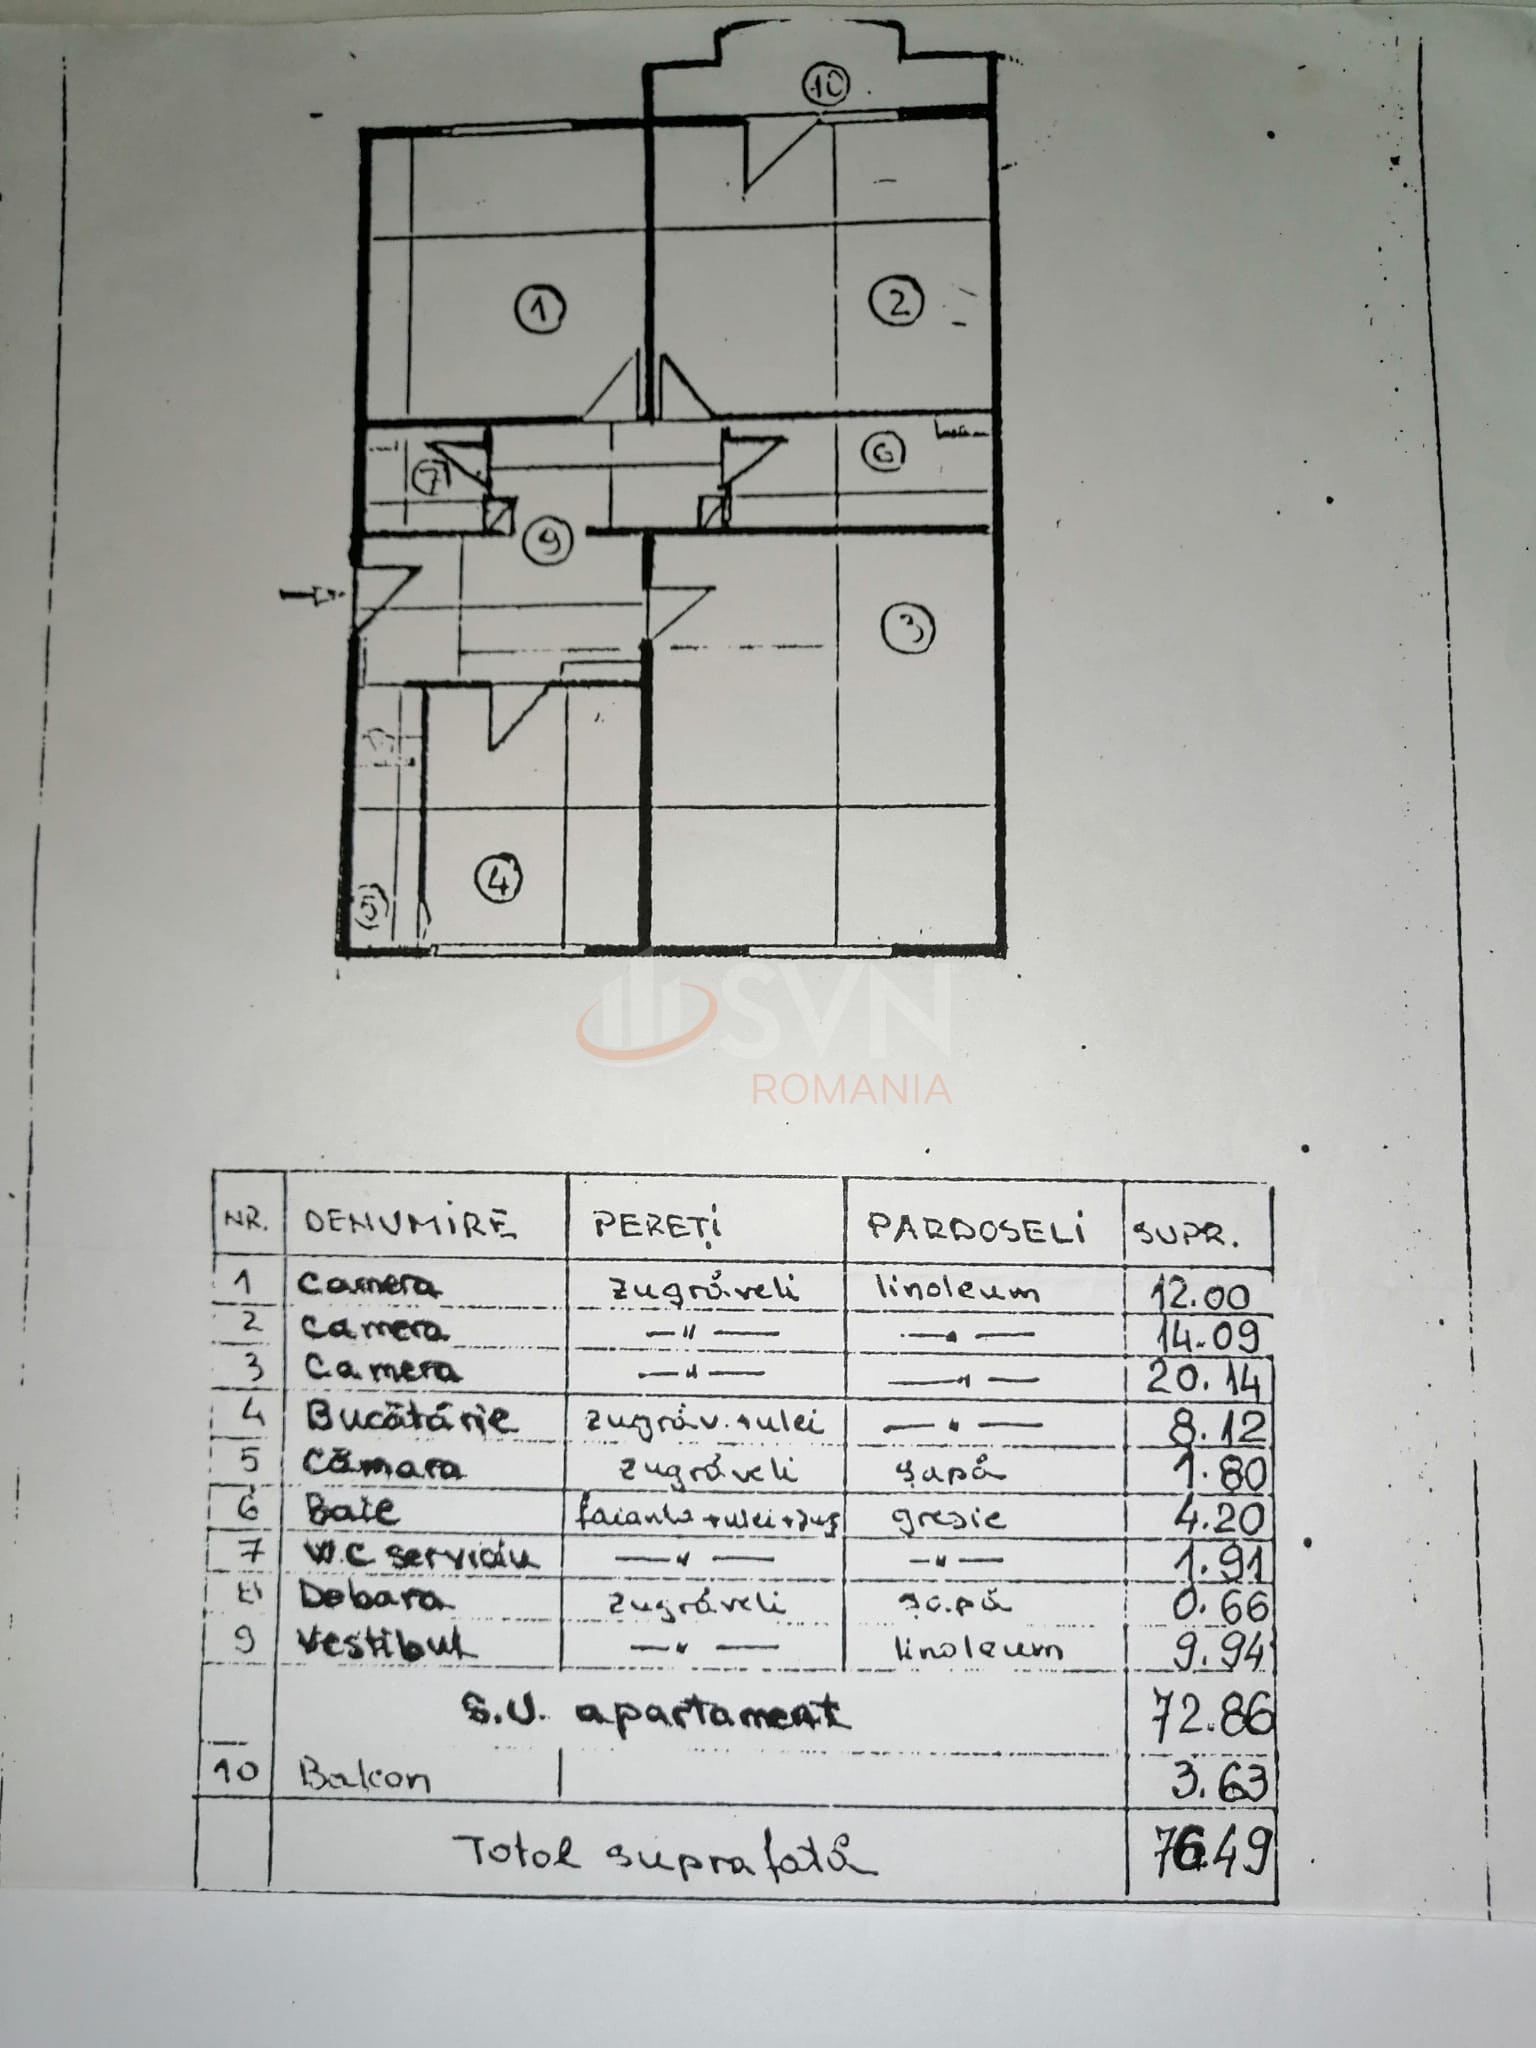 10
1
2
7
6
9
3
4
5
SVN
ROMANIA
NR. DENUMIRE PEREȚI PARDOSELI SUPR.
1 Camera zugrăveli linoleum 12.00
2 Camera —"— —"— 14.09
3 Camera —"— —"— 20.14
4 Bucătărie zugrăv.+ulei —"— 8.12
5 Cămara zugrăveli șapă 1.80
6 Baie faianta+ulei+zug gresie 4.20
7 W.C serviciu —"— —"— 1.91
8 Debara zugrăveli șapă 0.66
9 Vestibul —"— linoleum 9.94
S.U. apartament 72.86
10 Balcon 3.63
Total suprafată 76.49